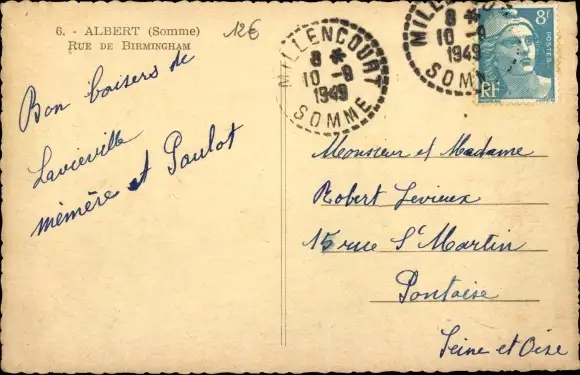 6. - ALBERT (Somme)
RUE DE BIRMINGHAM
12€
Bon baisers de
Lavieville
mémère et Poulot
MILLENCOURT
8 *
10 - 8
1949
SOMME
MILLENCOURT
8 *
10 - 8
1949
SOMME
8F
POSTES
RF
Monsieur et Madame
Robert Levieux
15 rue St Martin
Pontoise
Seine et Oise